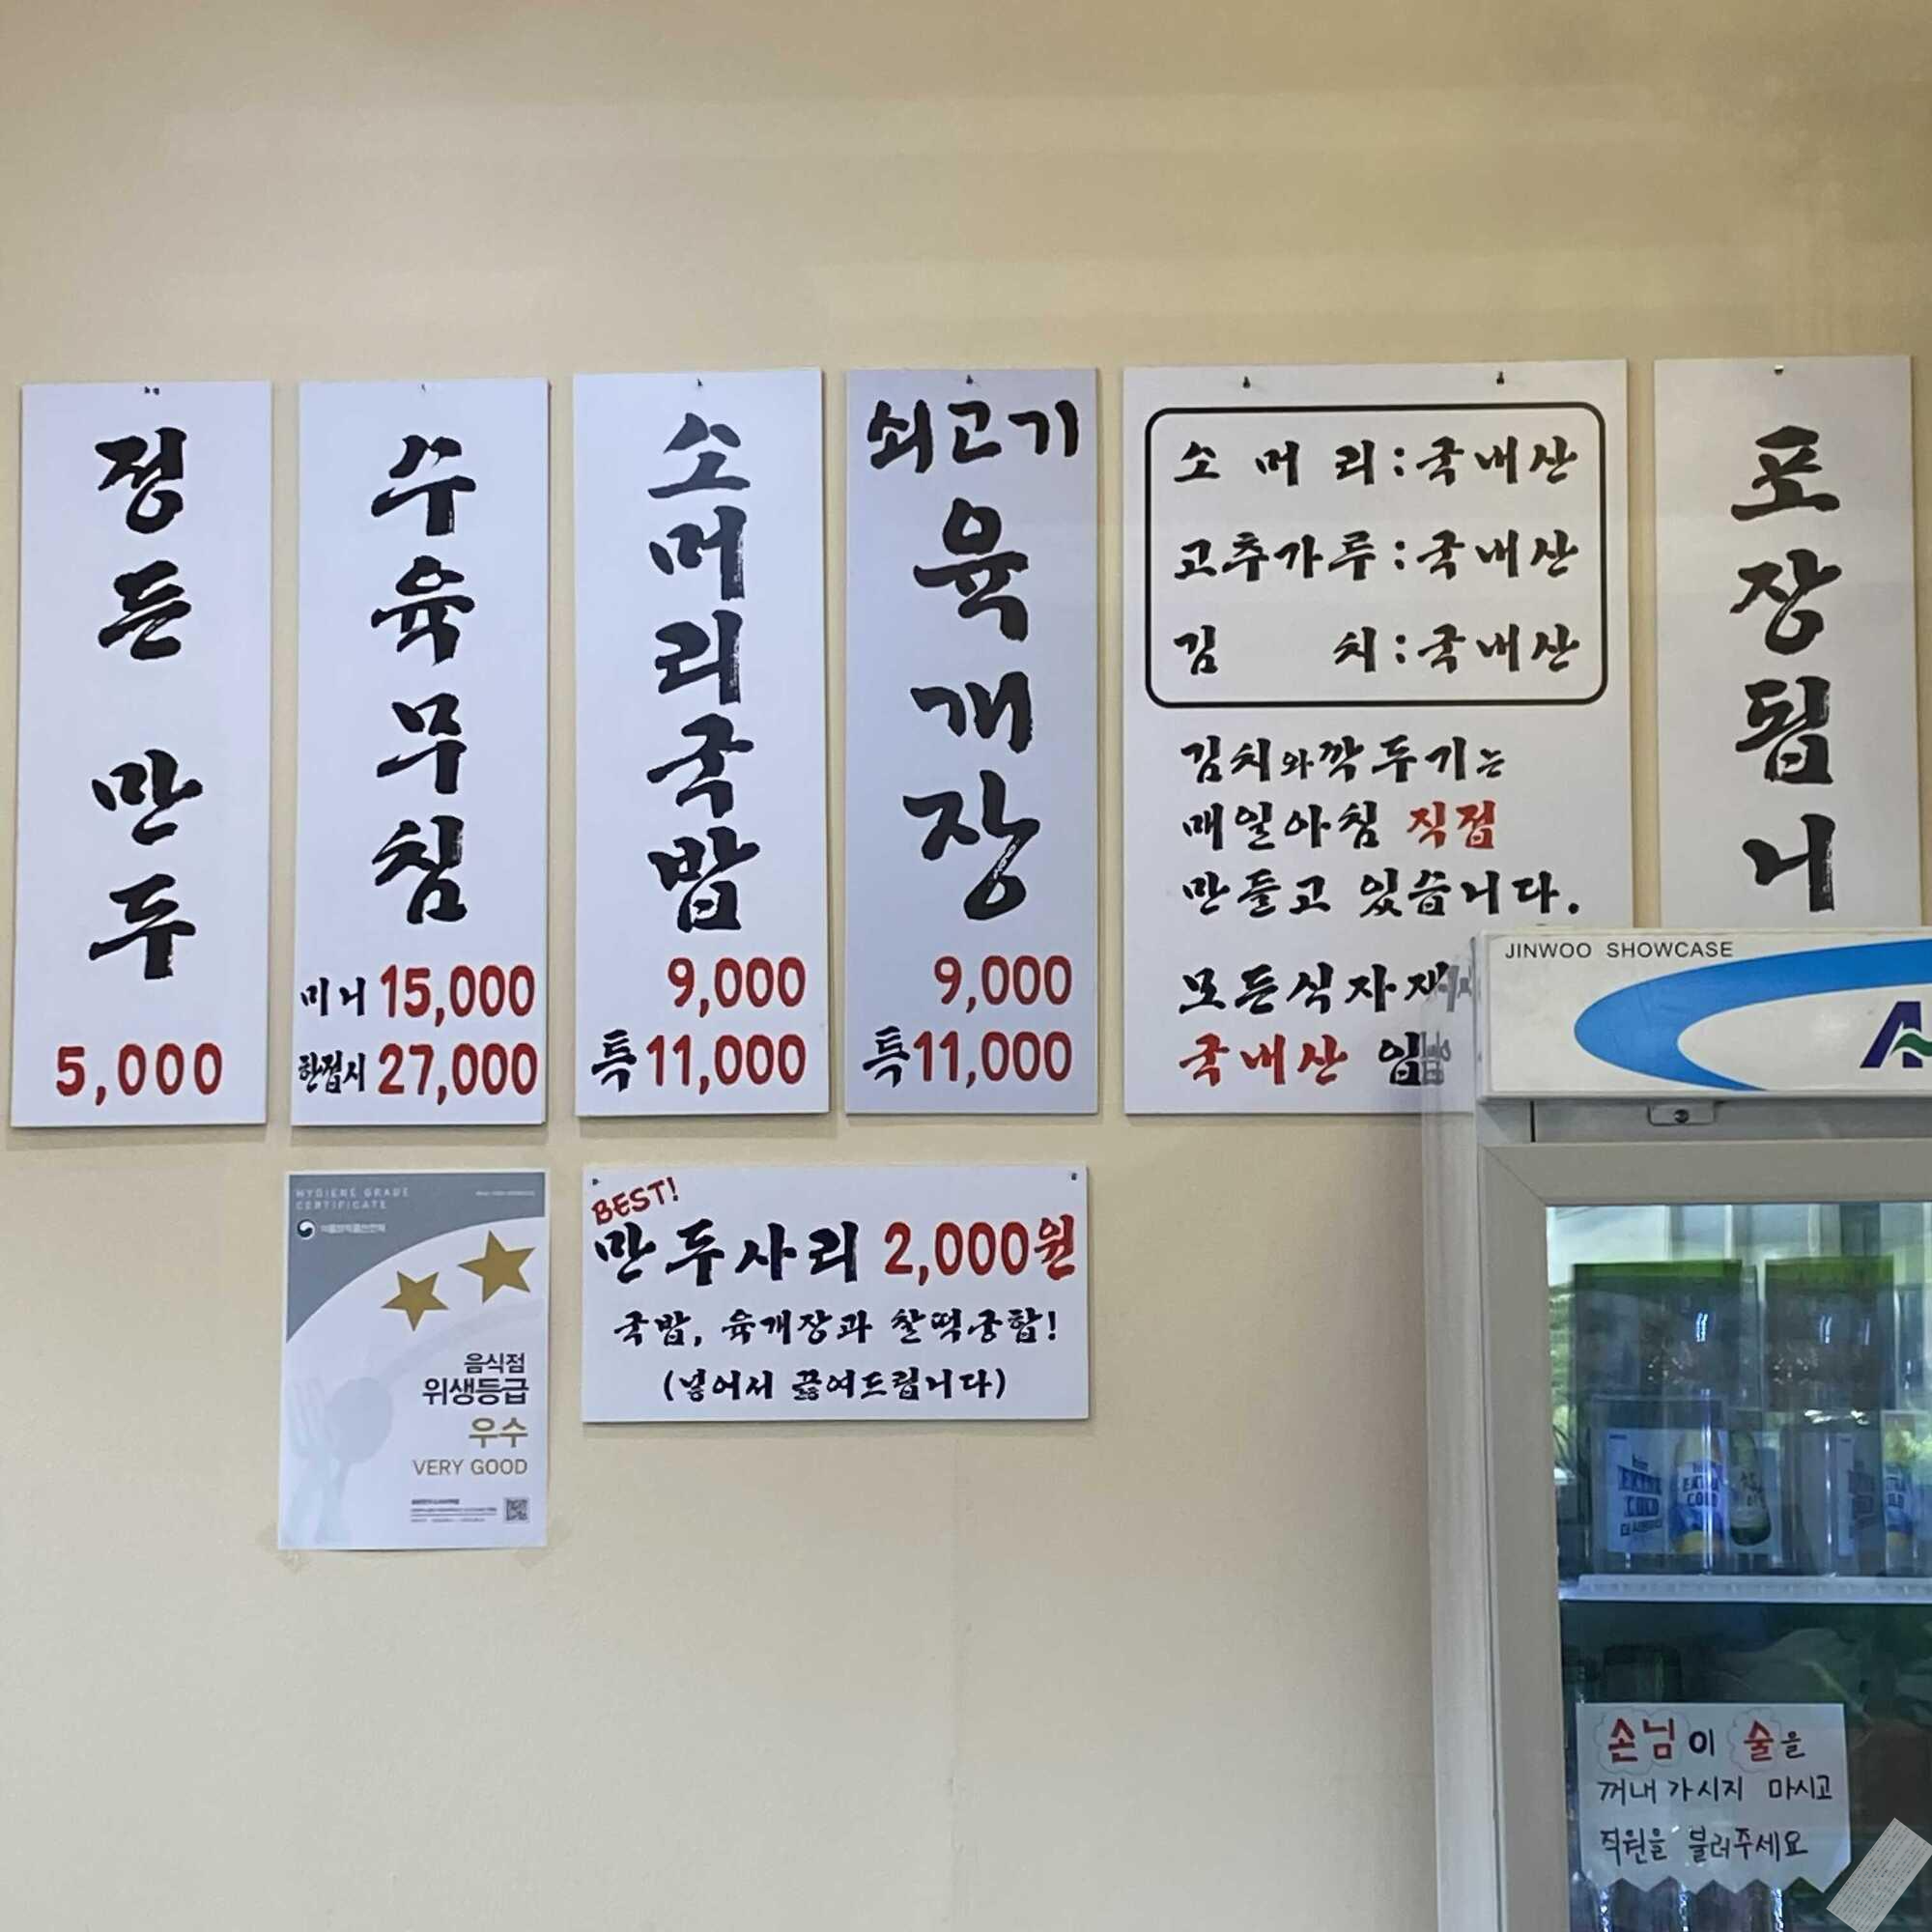 정든 만두
5,000
수육무침
미니 15,000
한접시 27,000
소머리국밥
9,000
특 11,000
쇠고기
육개장
9,000
특 11,000
소머리:국내산
고추가루:국내산
김치:국내산
김치와깍두기는
매일아침 직접
만들고 있습니다.
모든식자재
국내산 입
포장됩니
JINWOO SHOWCASE
HYGIENE GRADE
CERTIFICATE
식품의약품안전처
음식점
위생등급
우수
VERY GOOD
BEST!
만두사리 2,000원
국밥, 육개장과 찰떡궁합!
(넣어서 끓여드립니다)
EXTRA
COLD
손님이 술을
꺼내 가시지 마시고
직원을 불러주세요